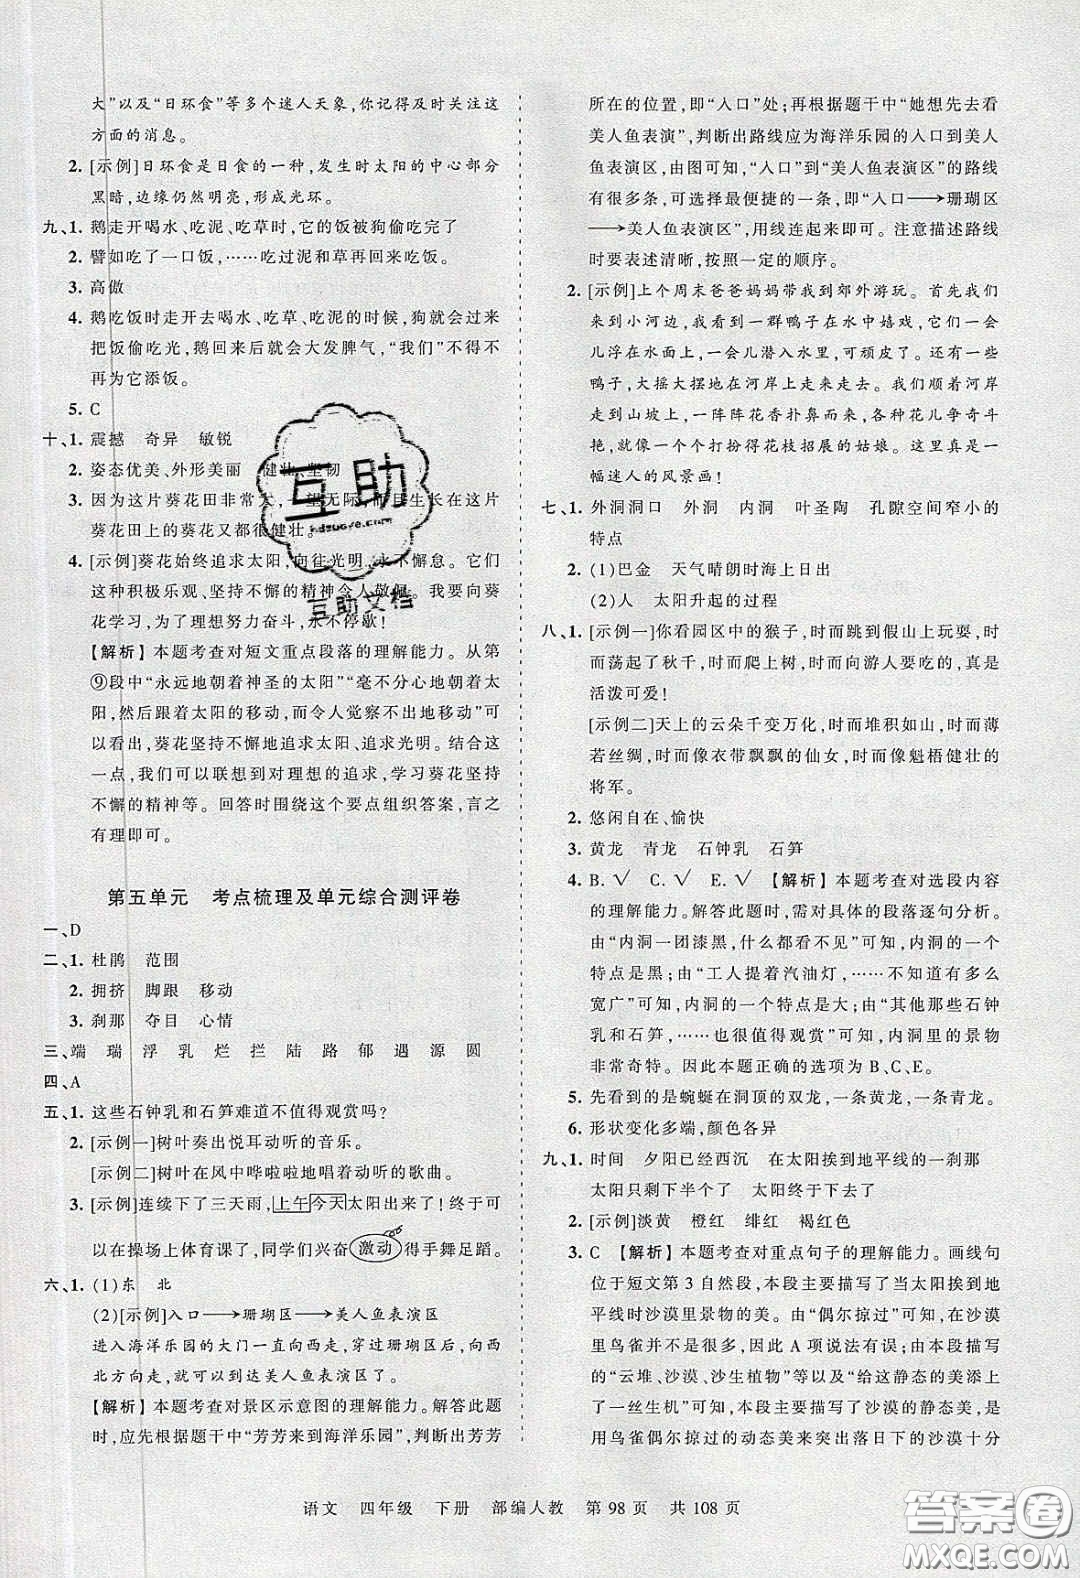 大”以及“日环食”等多个迷人天象,你记得及时关注这
方面的消息。
2. [示例]日环食是日食的一种,发生时太阳的中心部分
黑暗,边缘仍然明亮,形成光环。
九、1. 鹅走开喝水、吃泥、吃草时,它的饭被狗偷吃完了
2. 譬如吃了一口饭,……吃过泥和草再回来吃饭。
3. 高傲
4. 鹅吃饭时走开去喝水、吃草、吃泥的时候,狗就会走出来
把饭偷吃光,鹅回来后就会大发脾气,“我们”不得不
再为它添饭。
5. C
十、1. 震撼 奇异 敏锐
2. 姿态优美、外形美丽 健壮、坚韧
3. 因为这片葵花田非常大,一望无际,而且生长在这片
葵花田上的葵花又都很健壮。
4. [示例]葵花始终追求太阳,向往光明,永不懈怠。它们
这种积极乐观、坚持不懈的精神令人敬佩!我要向葵
花学习,为了理想努力奋斗,永不停歇!
【解析】本题考查对短文重点段落的理解能力。从第
⑨段中“永远地朝着神圣的太阳”“毫不分心地朝着太
阳,然后跟着太阳的移动,而令人觉察不出地移动”可
以看出,葵花坚持不懈地追求太阳、追求光明。结合这
一点,我们可以联想到对理想的追求,学习葵花坚持
不懈的精神等。回答时围绕这个要点组织答案,言之
有理即可。
第五单元 考点梳理及单元综合测评卷
一、D
二、1. 杜鹃 范围
2. 拥挤 脚跟 移动
3. 刹那 夺目 心情
三、端 瑞 浮 乳 烂 拦 陆 路 郁 遇 源 圆
四、A
五、1. 这些石钟乳和石笋难道不值得观赏吗?
2. [示例一]树叶奏出悦耳动听的音乐。
[示例二]树叶在风中哗啦啦地唱着动听的歌曲。
3. [示例]连续下了三天雨,上午今天太阳出来了!终于可
以在操场上体育课了,同学们兴奋激动得手舞足蹈。
六、1. (1)东 北
(2)[示例]入口→珊瑚区→美人鱼表演区
进入海洋乐园的大门一直向西走,穿过珊瑚区后,向西
北方向走,就可以到达美人鱼表演区了。
【解析】本题考查对景区示意图的理解能力。解答此题
时,应先根据题干中“芳芳来到海洋乐园”,判断出芳芳
所在的位置,即“入口”处;再根据题干中“她想先去看
美人鱼表演”,判断出路线应为海洋乐园的入口到美人
鱼表演区,由图可知,“入口”到“美人鱼表演区”的路线
有很多条,可选择最便捷的一条,即“入口→珊瑚区
→美人鱼表演区”,用线连起来即可。注意描述路线
时要表述清晰,按照一定的顺序。
2. [示例]上个周末爸爸妈妈带我到郊外游玩。首先我们
来到小河边,我看到一群鸭子在水中嬉戏,它们一会
儿浮在水面上,一会儿潜入水里,可顽皮了。还有一些
鸭子,大摇大摆地在河岸上走来走去。我们顺着河岸
来到山坡上,一阵阵花香扑鼻而来,各种花儿争奇斗
艳,就像一个个打扮得花枝招展的姑娘。这里真是一
幅迷人的风景画!
七、1. 外洞洞口 外洞 内洞 叶圣陶 孔隙空间窄小的
特点
2. (1)巴金 天气晴朗时海上日出
(2)人 太阳升起的过程
八、1. [示例一]你看园区中的猴子,时而跳到假山上玩耍,时
而荡起了秋千,时而爬上树,时而向游人要吃的,真是
活泼可爱!
[示例二]天上的云朵千变万化,时而堆积如山,时而薄
若丝绸,时而像衣带飘飘的仙女,时而像魁梧健壮的
将军。
2. 悠闲自在、愉快
3. 黄龙 青龙 石钟乳 石笋
4. B. √ C. √ E. √ 【解析】本题考查对选段内容
的理解能力。解答此题时,应对具体的段落逐句分析。
由“内洞一团漆黑,什么都看不见”可知,内洞的一个
特点是黑;由“工人提着汽油灯,……不知道有多么
宽广”可知,内洞的一个特点是大;由“其他那些石钟
乳和石笋,……也很值得观赏”可知,内洞里的景物
非常奇特。因此本题正确的选项为B、C、E。
5. 先看到的是蜿蜒在洞顶的双龙,一条黄龙,一条青龙。
6. 形状变化多端,颜色各异
九、1. 时间 夕阳已经西沉 在太阳挨到地平线的一刹那
太阳只剩下半个了 太阳终于下去了
2. [示例]淡黄 橙红 绯红 褐红色
3. C 【解析】本题考查对重点句子的理解能力。画线句
位于短文第3自然段,本段主要描写了当太阳挨到地
平线时沙漠里景物的美。由“偶尔掠过”可知,在沙漠
里鸟雀并不常见,因此A项说法有误;由本段中描写
的“云堆、沙漠、沙生植物”等以及“给这静态的美添
了一丝生机”可知,本段主要描写了沙漠的静态美,是
用鸟雀偶尔掠过的动态美来突出落日下的沙漠十分
语文 四年级 下册 部编人教 第98页 共108页
互助
hdzuoye.com
互助文档
答案圈
MXQE.COM